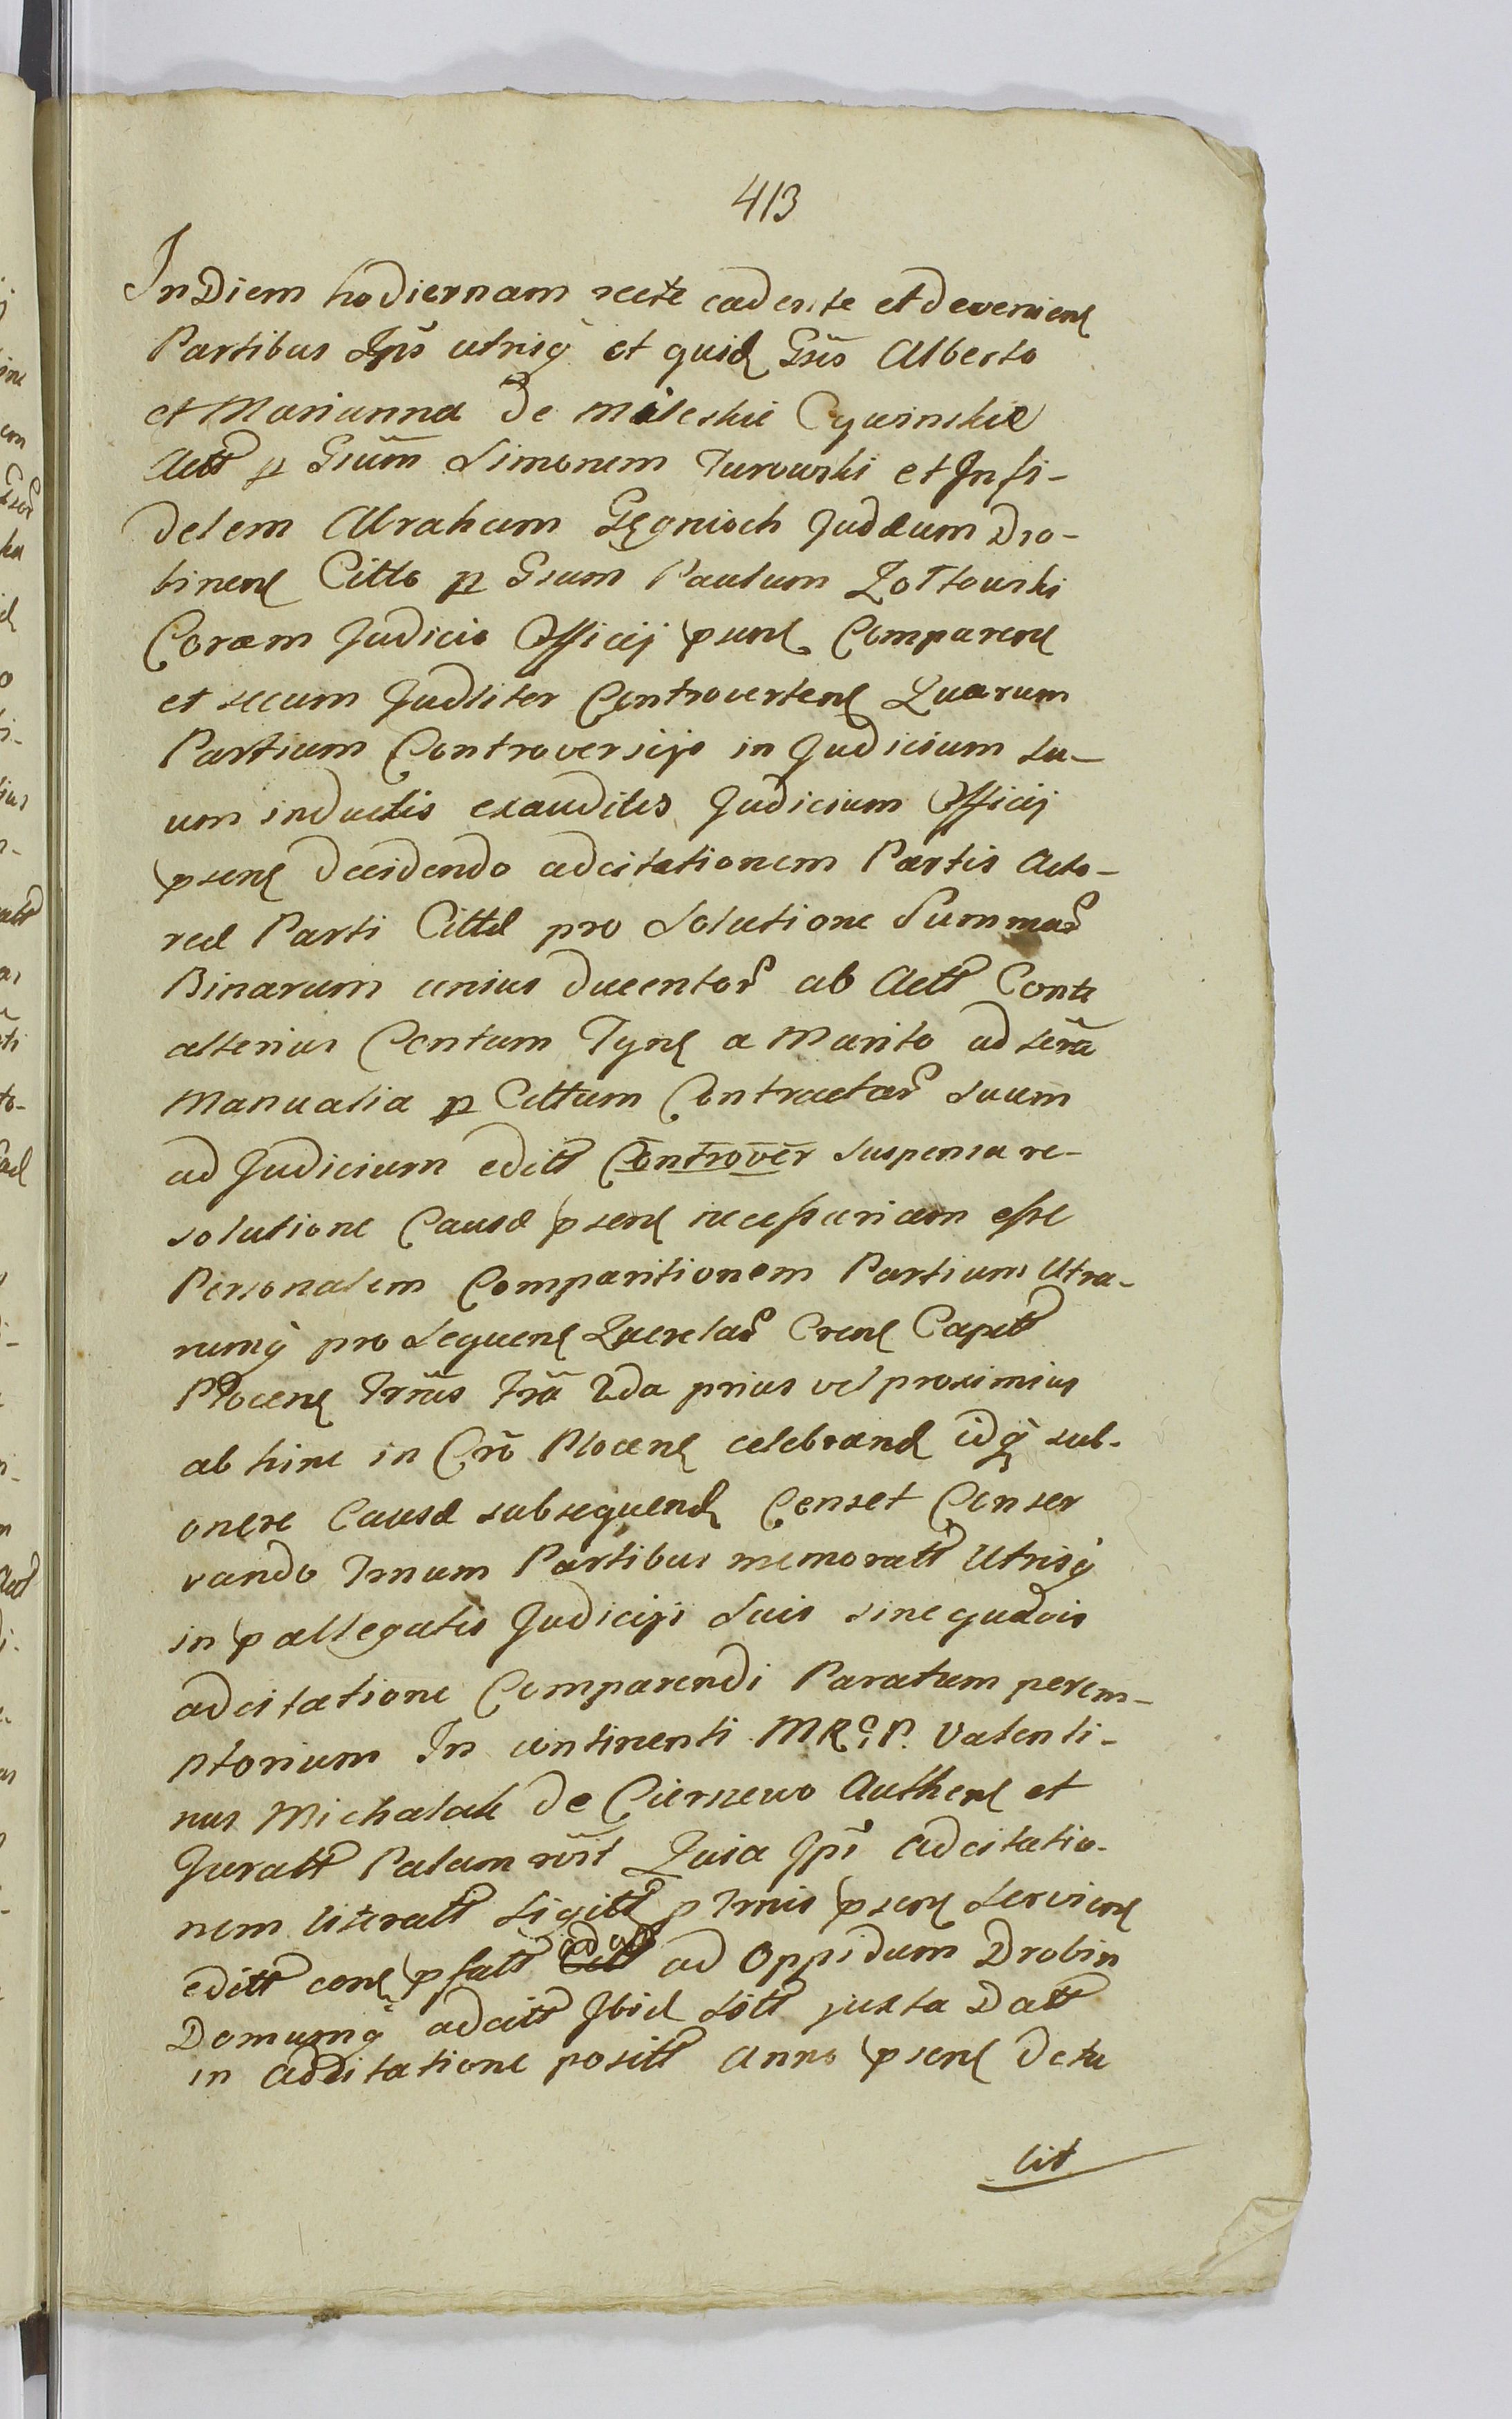 413
In Diem hodiernam recte cadente et deveniens
Partibus Ipīs utrisq̀ et quid Gsīs Alberto
et Marianna de Mileskie Cywinskie
Actt p Gsūm Simonem Turowski et Infi-
delem Abraham Gęgnioch Judæum Dro-
binens Citto p Gsum Paulum Zołtowski
Coram Judicio Officij psens Comparens
et secum Judliter Controvertens Quarum
Partium Controversijs in Judicium su-
um inductis exauditis Judicium Officij
psens decidendo adcitationem Partis Acto-
reæ Parti Cittæ pro Solutione Summar
Binarum unius ducentor ab Actt Contr
alterius Centum Tyns a Marito ad
Manualia p Cittum Contractar suum
ad Judicium editt Controver suspensa re-
solutione Causæ psens necessariam esse
Personalem Comparitionem Partium Utra-
rumq̀ pro Sequens Querelar Crens Capitt
Plocens Trmīs Trā 2da prius vel proximius
ab hinc in Crō Plocens celebrand idq̀ sub-
onere Causæ subsequend Censet Conser
vando Trnum Partibus memoratt Utrisq̀
in pallegatis Judicijs Suis sine quavis
adcitatione Comparendi Paratum perem-
ptorium In continenti MRC: P. Valenti-
nus Michalak de Cierszewo Authens et
Juratt Palam Quia Ipi Adcitatio-
nem literatt Sigitt p Trnis psens Serviens
editt cons pfatt ad Oppidum Drobin
Domumq̀ adcitt Ibid Sitt juxta Datt
in Adcitatione positt Anno psens detu
lit